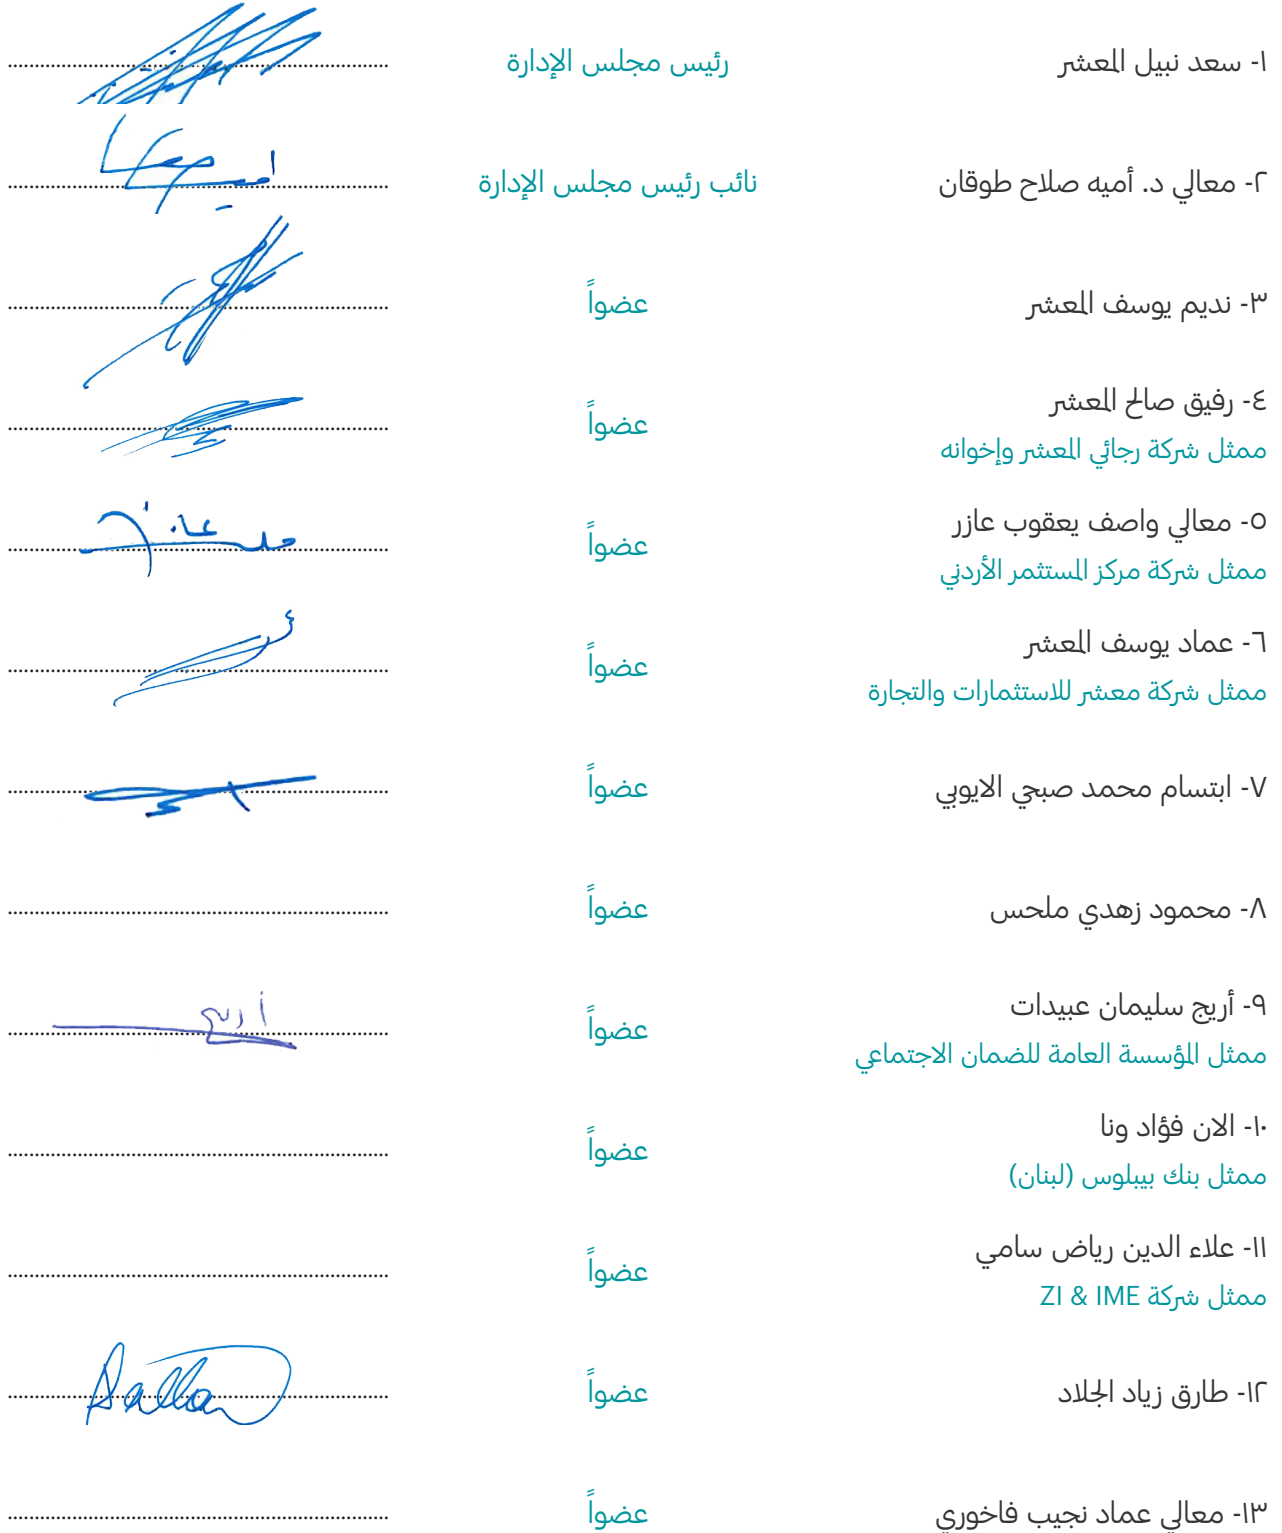 ١- سعد نبيل المعشر رئيس مجلس الإدارة
٢- معالي د. أميه صلاح طوقان نائب رئيس مجلس الإدارة
٣- نديم يوسف المعشر عضواً
٤- رفيق صالح المعشر عضواً
ممثل شركة رجائي المعشر وإخوانه
٥- معالي واصف يعقوب عازر عضواً
ممثل شركة مركز المستثمر الأردني
٦- عماد يوسف المعشر عضواً
ممثل شركة معشر للاستثمارات والتجارة
٧- ابتسام محمد صبحي الايوبي عضواً
٨- محمود زهدي ملحس عضواً
٩- أريج سليمان عبيدات عضواً أريج
ممثل المؤسسة العامة للضمان الاجتماعي
١٠- الان فؤاد ونا عضواً
ممثل بنك بيبلوس (لبنان)
١١- علاء الدين رياض سامي عضواً
ممثل شركة ZI & IME
١٢- طارق زياد الجلاد عضواً
١٣- معالي عماد نجيب فاخوري عضواً